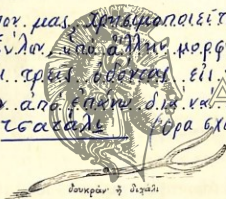 ον μας, χρησιμοποιεῖτ
ξύλον, ὑπὸ ἄλλην μορφ
τρεῖς ὀδόντας, εἰ
ἀπὸ ἐπάνω διὰ να
τσατάλι
δουκράν' ἢ διχάλι